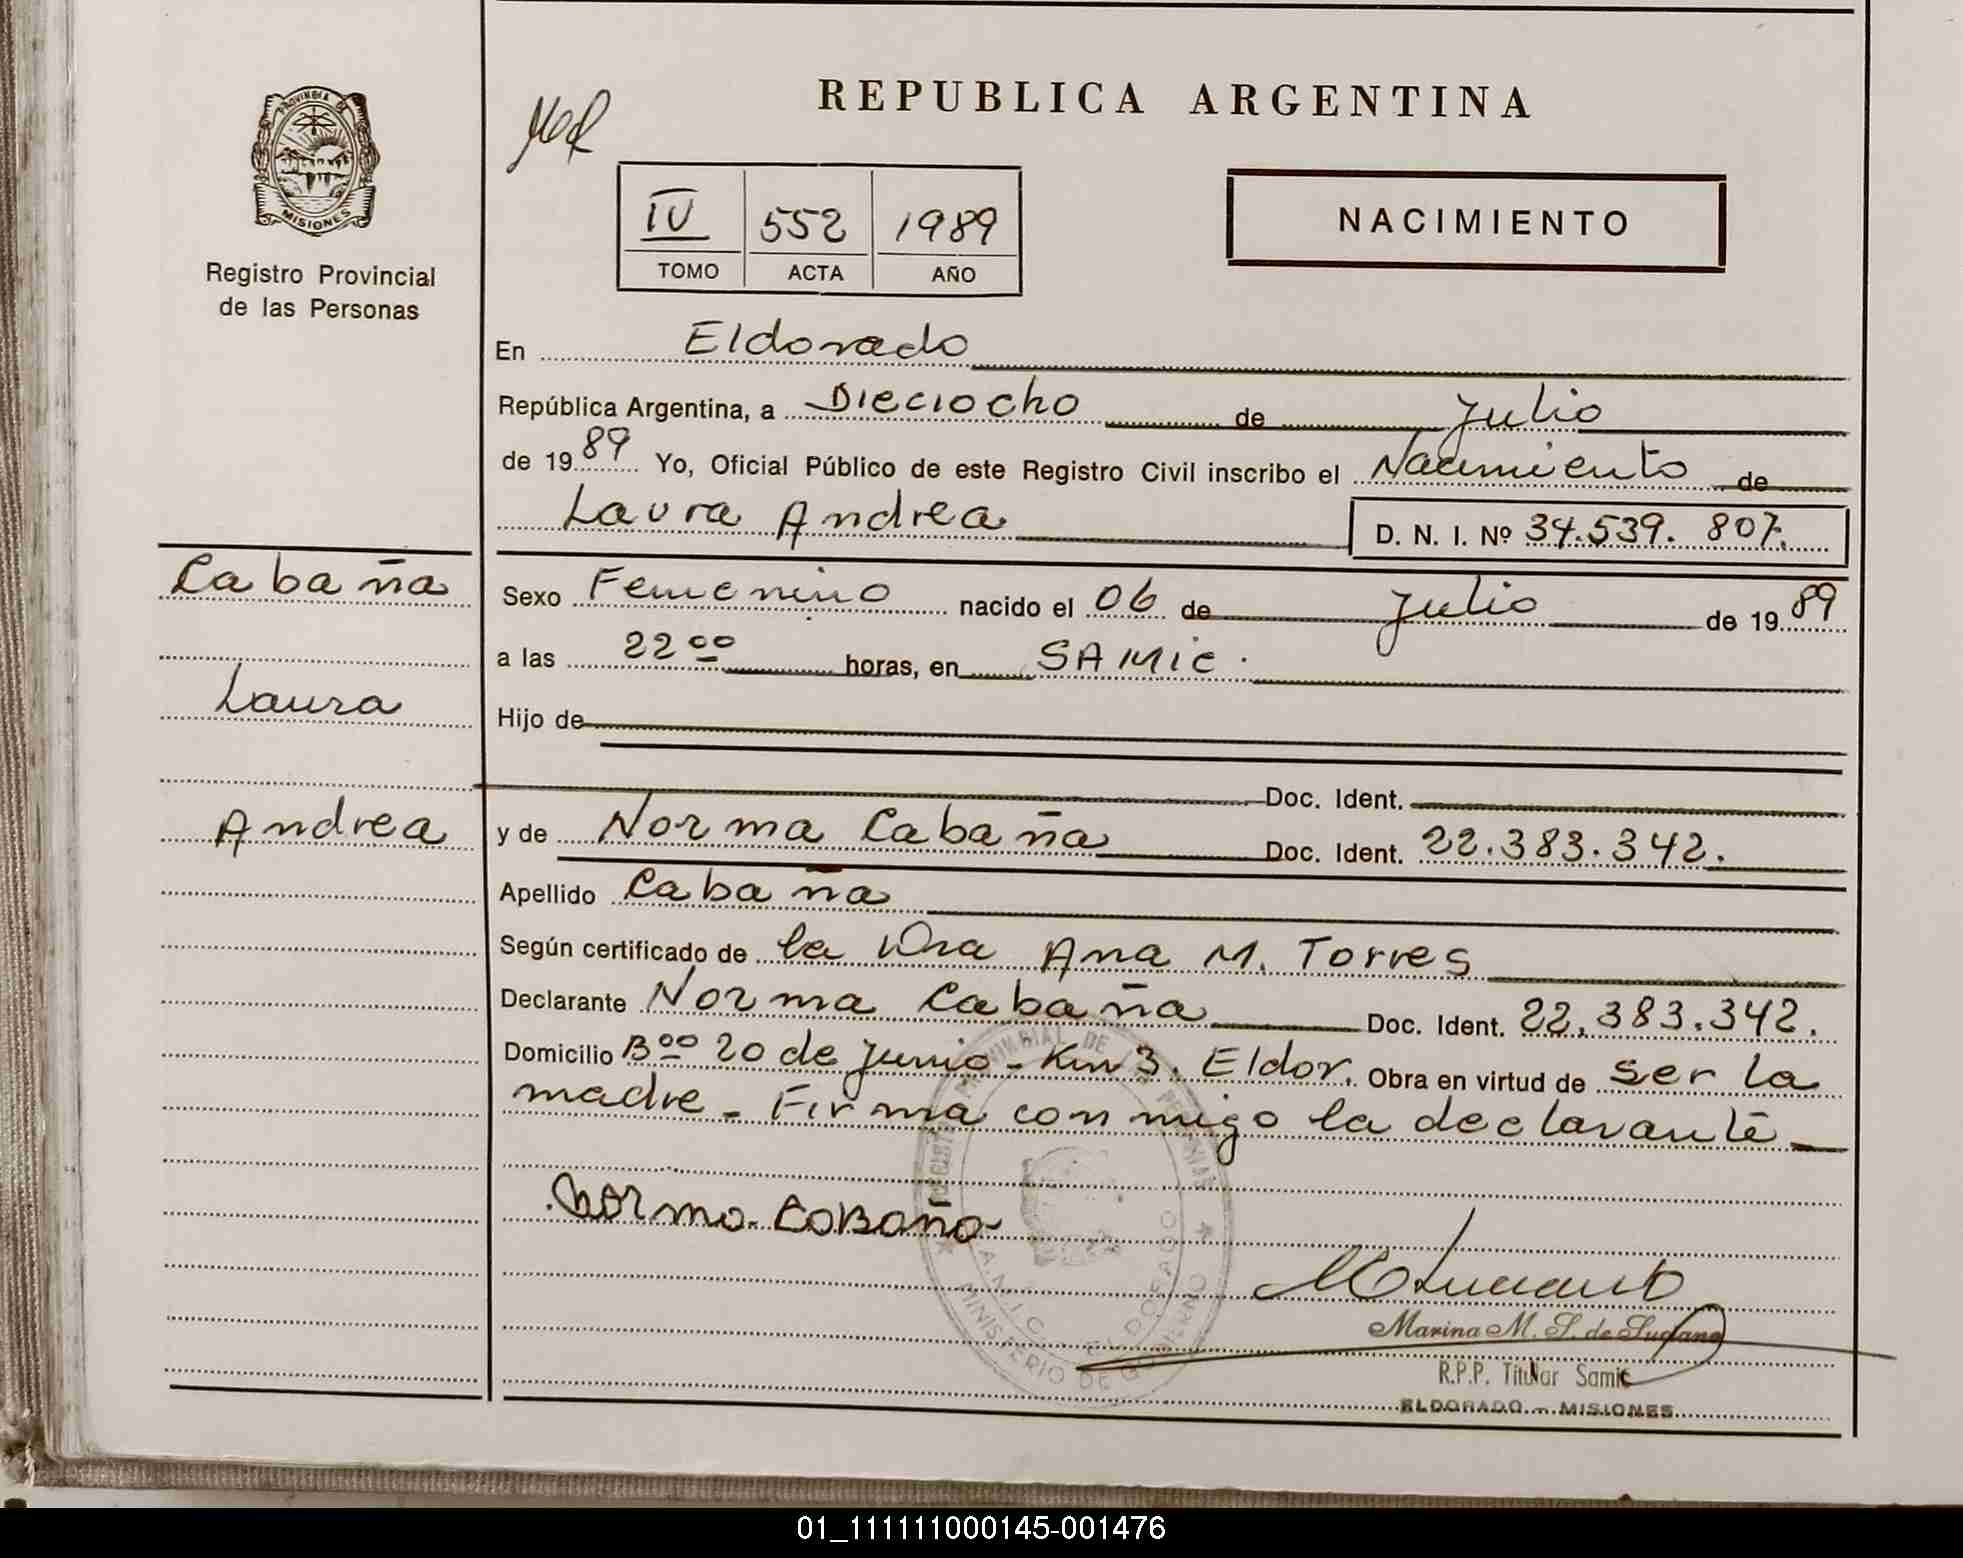 PROVINCIA DE
MISIONES
Registro Provincial
de las Personas
REPUBLICA ARGENTINA
IV 552 1989
TOMO ACTA AÑO
NACIMIENTO
En Eldorado
República Argentina, a Dieciocho de Julio
de 1989 Yo, Oficial Público de este Registro Civil inscribo el Nacimiento de
Laura Andrea D. N. I. Nº 34.539.807.
Cabaña
Laura
Andrea
Sexo Femenino nacido el 06 de Julio de 1989
a las 22 00 horas, en SAMIC.
Hijo de
Doc. Ident.
y de Norma Cabaña Doc. Ident. 22.383.342.
Apellido Cabaña
Según certificado de la Dra Ana M. Torres
Declarante Norma Cabaña Doc. Ident. 22.383.342.
Domicilio Boo 20 de Junio - Km 3. Eldor. Obra en virtud de ser la
madre - Firma conmigo la declarante
Norma Cabaña
Marina M. S. de Luciano
R.P.P. Titular Samic
ELDORADO - MISIONES
MINISTERIO DE GOBIERNO
ELDORADO
01_111111000145-001476